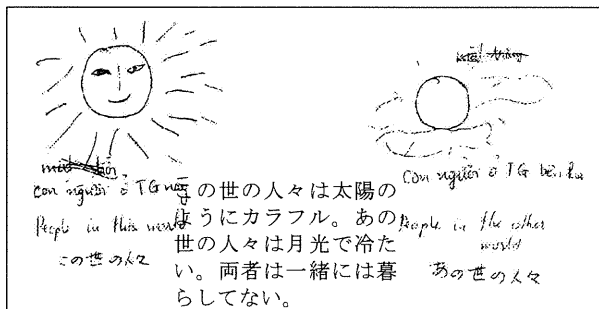 con người ở TG này
People in this world
この世の人々
この世の人々は太陽の
ようにカラフル。あの
世の人々は月光で冷た
い。両者は一緒には暮
らしてない。
con người ở TG bên kia
People in the other
world
あの世の人々